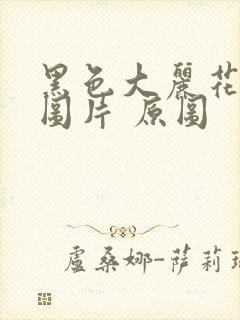 黑色大麗花
圖片 原圖
盧桑娜-薩莉